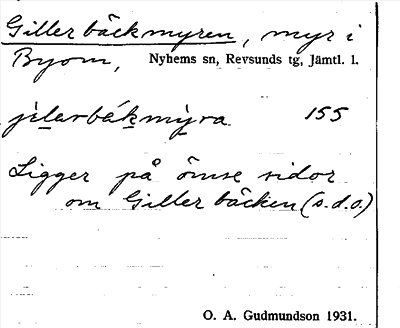 Gillerbäckmyren, myr i
Byom, Nyhems sn, Revsunds tg, Jämtl. l.
jìlarbákmỳra 155
Ligger på ömse sidor
om Gillerbäcken (s.d.o.)
O. A. Gudmundson 1931.